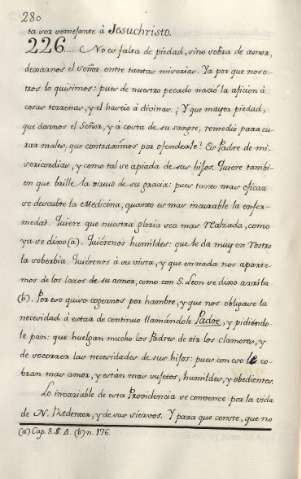 280
ta vez semejante à Jesuchristo.
226.... No es falta de piedad, sino sobra de amor,
dexarnos el Señor entre tantas miserias. Ya por que noso-
tros lo quisimos: pues de nuestro pecado nació la aficion à
cosas terrenas, y el hastio à divinas. ¿Y que mayor piedad,
que darnos el Señor, y à costa de su sangre, remedio para cu-
rar males, que contraximos por ofenderle? Es Padre de mi-
sericordias, y como tal se apiada de sus hijos. Quiere tambi-
en que brille la virtud de su gracia: pues tanto mas eficaz
se descubre la Medicina, quanto es mas incurable la enfer-
medad. Quiere que nuestra gloria sea mas realzada, como
ya se dixo (a). Quiérenos humildes: que le da muy en rostro
la soberbia. Quiérenos à su vista, y que en nada nos aparte-
mos de los lazos de su amor, como con S. Leon se dixo arriba
(b). Por eso quiso cogernos por hambre, y que nos obligase la
necesidad à estar de continuo llamándole Padre, y pidiéndo-
le pan: que huelgan mucho los Padres de oír los clamores, y
de socorrer las necesidades de sus hijos: pues con eso le co-
bran mas amor, y están mas sujetos, humildes, y obedientes.
Lo invariable de esta Providencia se convence por la vida
de N. Redentor, y de sus siervos. Y para que conste, que no
(a) Cap. 8. §. 2. (b) n. 176.